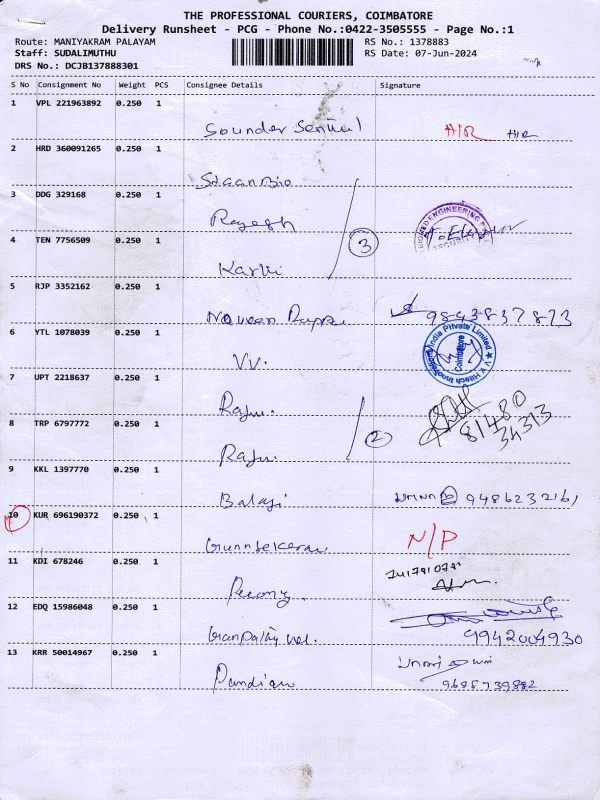 THE PROFESSIONAL COURIERS, COIMBATORE
Delivery Runsheet - PCG - Phone No.:0422-3505555 - Page No.:1
Route: MANIYAKRAM PALAYAM
RS No.: 1378883
Staff: SUDALIMUTHU
RS Date: 07-Jun-2024
DRS No.: DCJB137888301
S No Consignment No Weight PCS Consignee Details Signature
1 VPL 221963892 0.250 1
2 HRD 360091265 0.250 1
3 DDG 329168 0.250 1
Rajesh
4 TEN 7756509 0.250 1
3
5 RJP 3352162 0.250 1
9843837873
6 YTL 1078039 0.250 1
V V Hitech Innovation India Private Limited
Coimbatore
VV.
7 UPT 2218637 0.250 1
Raju.
8 TRP 6797772 0.250 1
2
81480
34313
Raju.
9 KKL 1397770 0.250 1
Balaji
10 KUR 696190372 0.250 1
N/P
11 KDI 678246 0.250 1
12 EDQ 15986048 0.250 1
9942004930
13 KRR 50014967 0.250 1
Pandian 9685739882